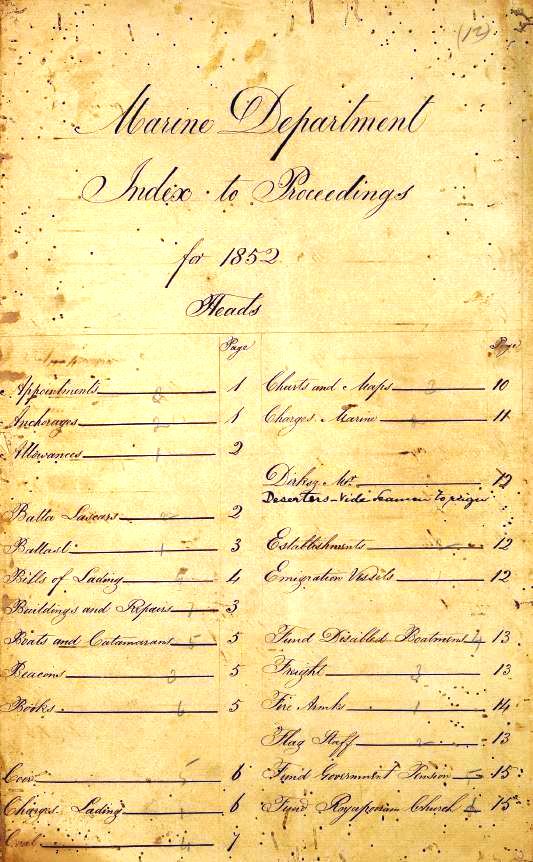 (12)
Marine Department
Index to Proceedings
for 1852
Heads
Page
Appointments 8 1
Anchorages 2 1
Allowances 1 2
Batta Lascars 2 2
Ballast 1 3
Bills of Lading 4
Buildings and Repairs 7 3
Boats and Catamarans 5 5
Beacons 3 5
Books 6 5
6
Charges Lading 6
Coal 4 7
Page
Charts and Maps 3 10
Charges Marine 11
12
Deserters - Vide Seamen
Establishments 12
Emigration Vessels 1 12
Fund Disabled Boatmens 4 13
Freight 3 13
Fire Arms 1 14
Flag Staff 2 13
Fund Government Pension 15
Fund Royapooram Church 15